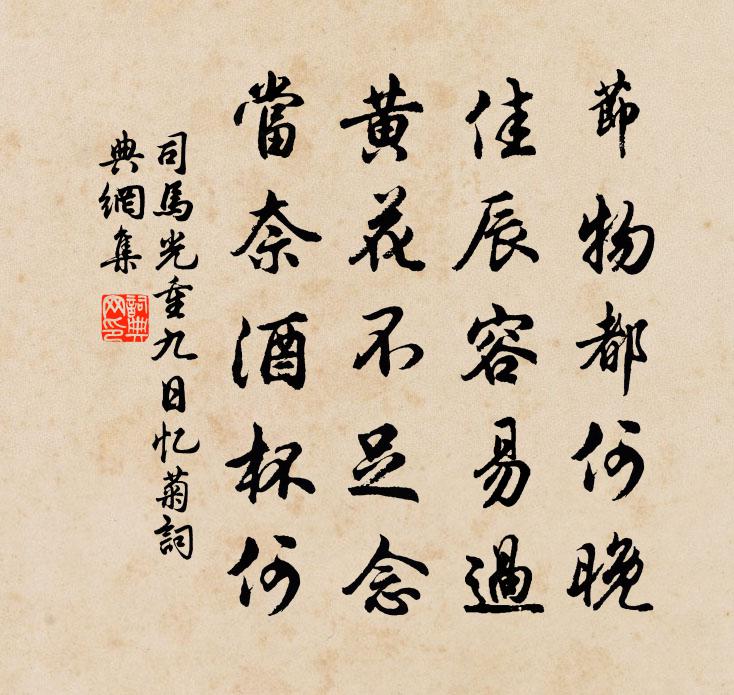 節物都何晚
佳辰容易過
黃花不足念
當奈酒杯何
司馬光重九日忆菊詞
典網集
詞典
网印